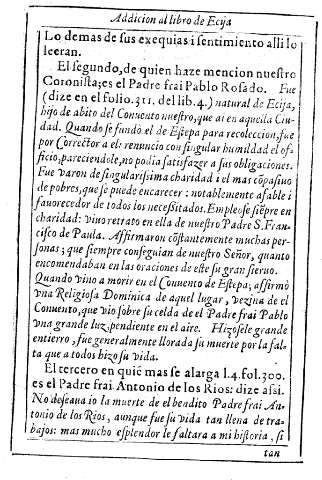 Addicion al libro de Ecija
Lo demas de sus exequias i sentimiento alli lo
leeran.
El segundo, de quien haze mencion nuestro
Coronista; es el Padre frai Pablo Rosado. Fue
(dize en el folio. 311. del lib. 4.) natural de Ecija,
hijo de abito del Convento nuestro, que ai en aquella Ciu-
dad. Quando se fundò el de Estepa para recoleccion, fue
por Corrector a el: renunciò con singular humildad el of-
ficio, pareciendole, no podia satisfazer a sus obligaciones.
Fue varon de singularissima charidad i el mas cõpasivo
de pobres, que se puede encarecer: notablemente afable i
fauorecedor de todos los necessitados. Empleose siẽpre en
charidad: vivo retrato en ella de nuestro Padre S. Fran-
cisco de Paula. Affirmaron cõstantemente muchas per-
sonas; que siempre conseguian de nuestro Señor, quanto
encomendaban en las oraciones de este su gran siervo.
Quando vino a morir en el Convento de Estepa; affirmò
vna Religiosa Dominica de aquel lugar, vezina de el
Convento, que vio sobre su celda de el Padre frai Pablo
vna grande luz, pendiente en el aire. Hizosele grande
entierro, fue generalmente llorada su muerte por la fal-
ta que a todos hizo su vida.
El tercero en quiẽ mas se alarga l. 4. fol. 300.
es el Padre frai Antonio de los Rios: dize assi.
No deseaua io la muerte de el bendito Padre frai An-
tonio de los Rios, aunque fue su vida tan llena de tra-
bajos: mas mucho esplendor le faltara a mi historia, si
tan